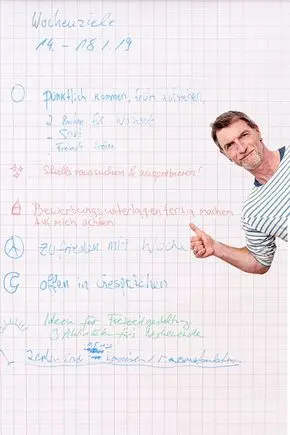 Wochenziele
14. - 18.1.19
pünktlich kommen, früh aufstehen,
2 für
- Sport
Freunde treffen
Skills raussuchen & ausprobieren!
Bewerbungsunterlagen fertig machen
auf mich achten
zufrieden mit Woche
offen in Gesprächen
Ideen für Freizeitgestaltung
3 Aktivitäten fürs Wochenende